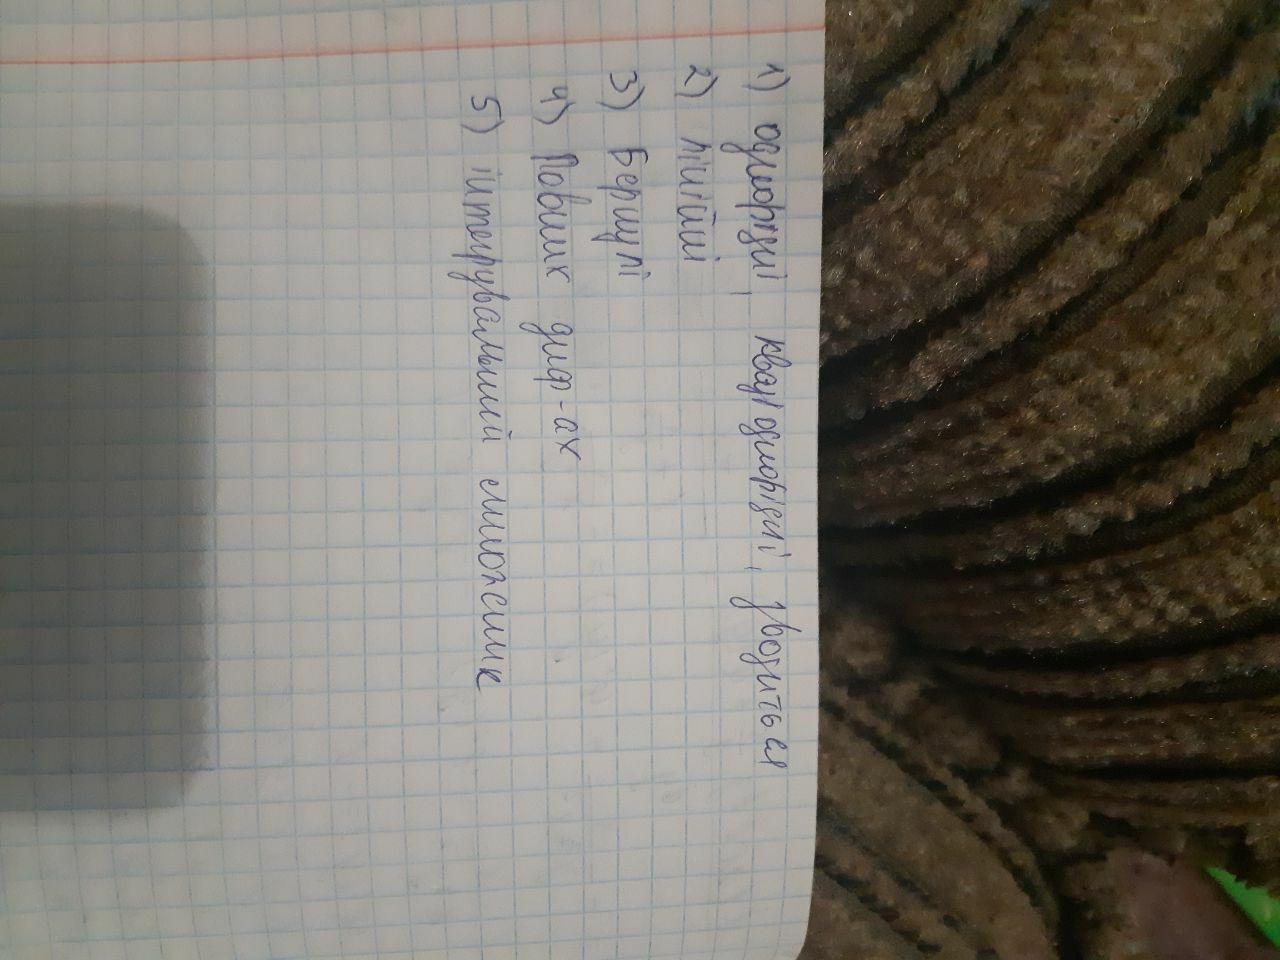 1) однорідні, квазіоднорідні, зводиться
2) лінійні
3) Бернулі
4) Повних диф-ах
5) інтегрувальний множник